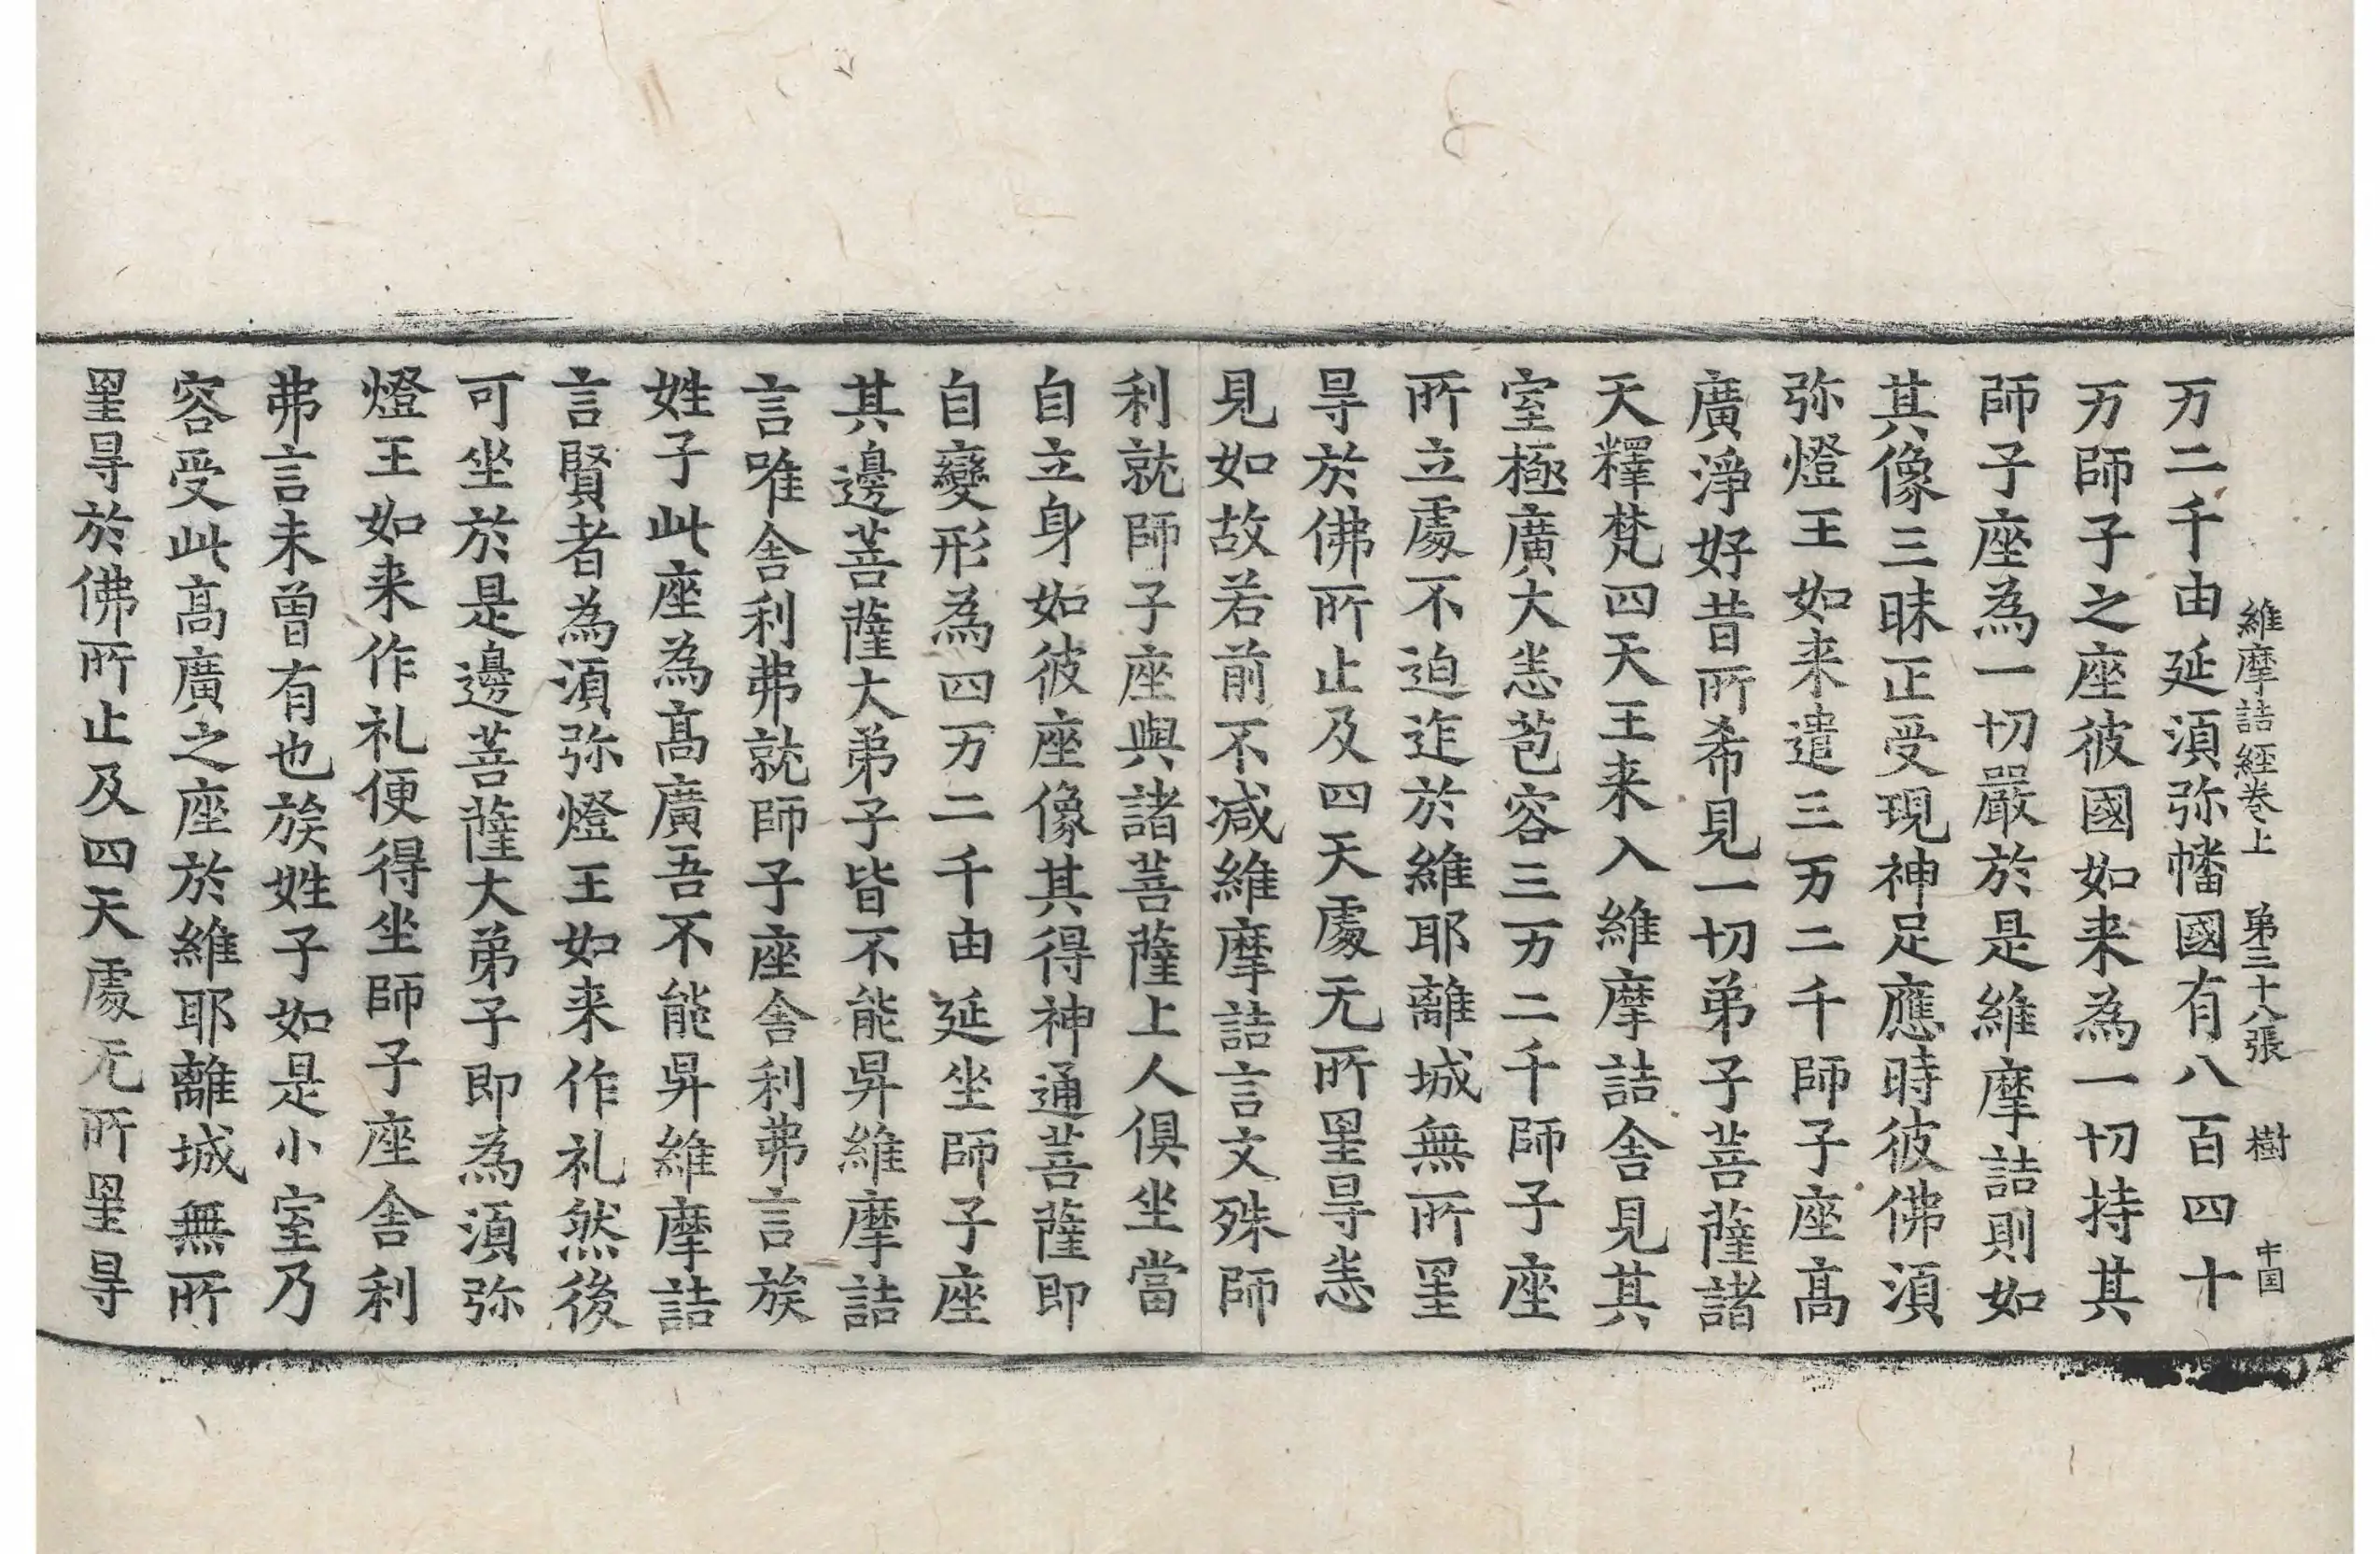 維摩詰經巻上　第三十八張　樹　中国
万二千由延湏弥幡國有八百四十
万師子之座彼國如来為一切持其
師子座為一切嚴於是維摩詰則如
其像三昧正受現神足應時彼佛湏
弥燈王如来遣三万二千師子座髙
廣淨好昔所希見一切弟子菩薩諸
天釋梵四天王来入維摩詰舎見其
室極廣大悉苞容三万二千師子座
所立處不迫迮於維耶離城無所罣
㝵於佛所止及四天處无所罣㝵悉
見如故若前不减維摩詰言文殊師
利就師子座與諸菩薩上人俱坐當
自立身如彼座像其得神通菩薩即
自變形為四万二千由延坐師子座
其邊菩薩大弟子皆不能昇維摩詰
言唯舎利弗就師子座舎利弗言族
姓子此座為髙廣吾不能昇維摩詰
言賢者為湏弥燈王如来作礼然後
可坐於是邊菩薩大弟子即為湏弥
燈王如来作礼便得坐師子座舎利
弗言未曾有也族姓子如是小室乃
容受此髙廣之座於維耶離城無所
罣㝵於佛所止及四天處无所罣㝵